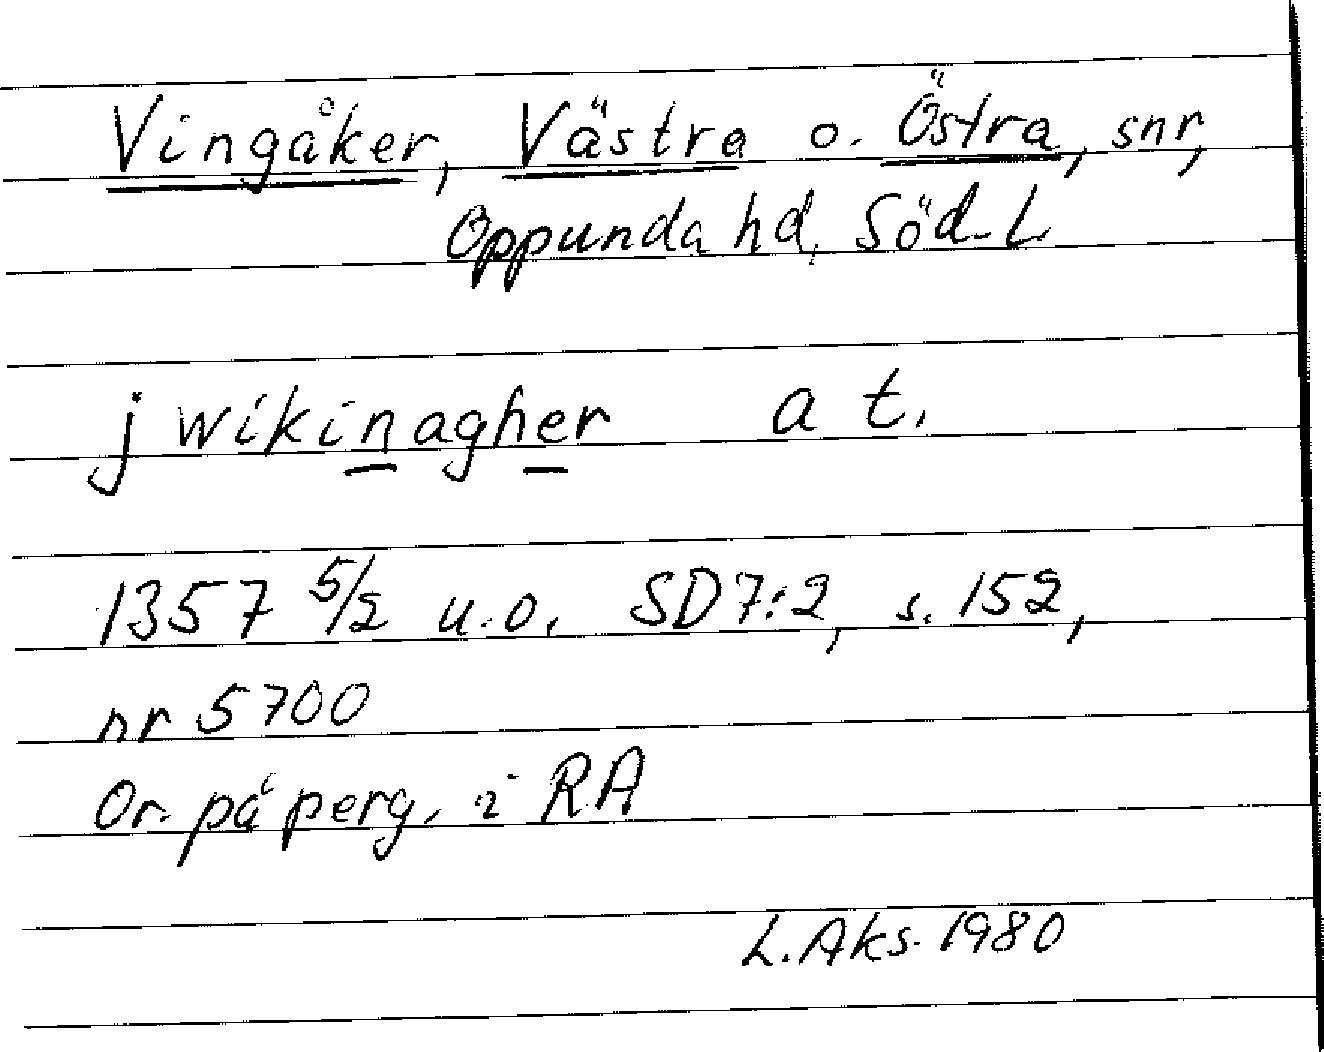 Vingåker, Västra o. Östra, snr,
Oppunda hd, Söd. L
j wikinagher a t.
1357 5/2 u.o. SD 7:2, s. 152,
nr 5700
Or. på perg. i RA
L. Aks. 1980